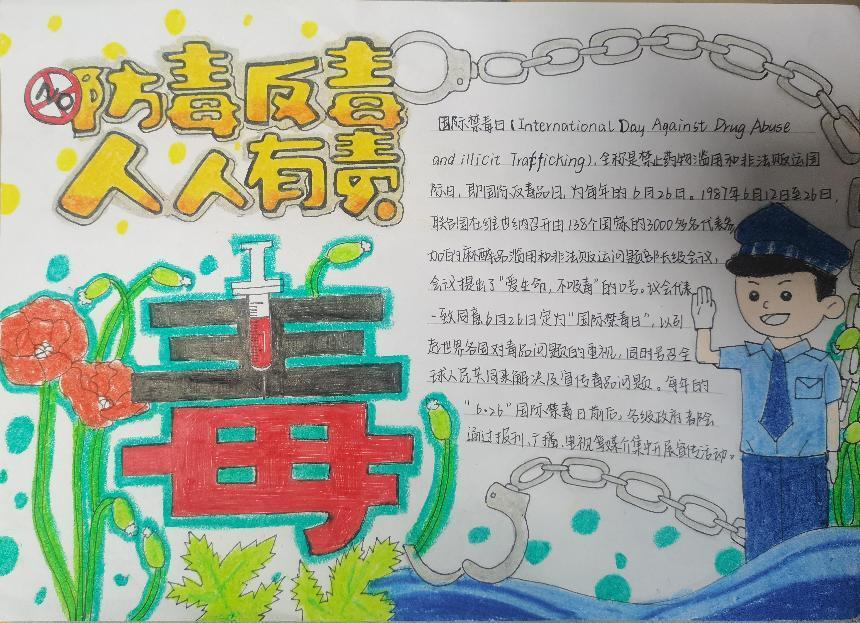 NO
防毒反毒
人人有责
毒
国际禁毒日(International Day Against Drug Abuse
and illicit Trafficking),全称是禁止药物滥用和非法贩运国
际日,即国际反毒品日,为每年的6月26日。1987年6月12日至26日,
联合国在维也纳召开由138个国家的3000多名代表参
加的麻醉品滥用和非法贩运问题部长级会议,
会议提出了“爱生命,不吸毒”的口号。议会代表
一致同意6月26日定为“国际禁毒日”,以引
起世界各国对毒品问题的重视,同时号召全
球人民共同来解决及宣传毒品问题。每年的
“6·26”国际禁毒日前后,各级政府都会
通过报刊、广播、电视等媒介集中开展宣传活动。